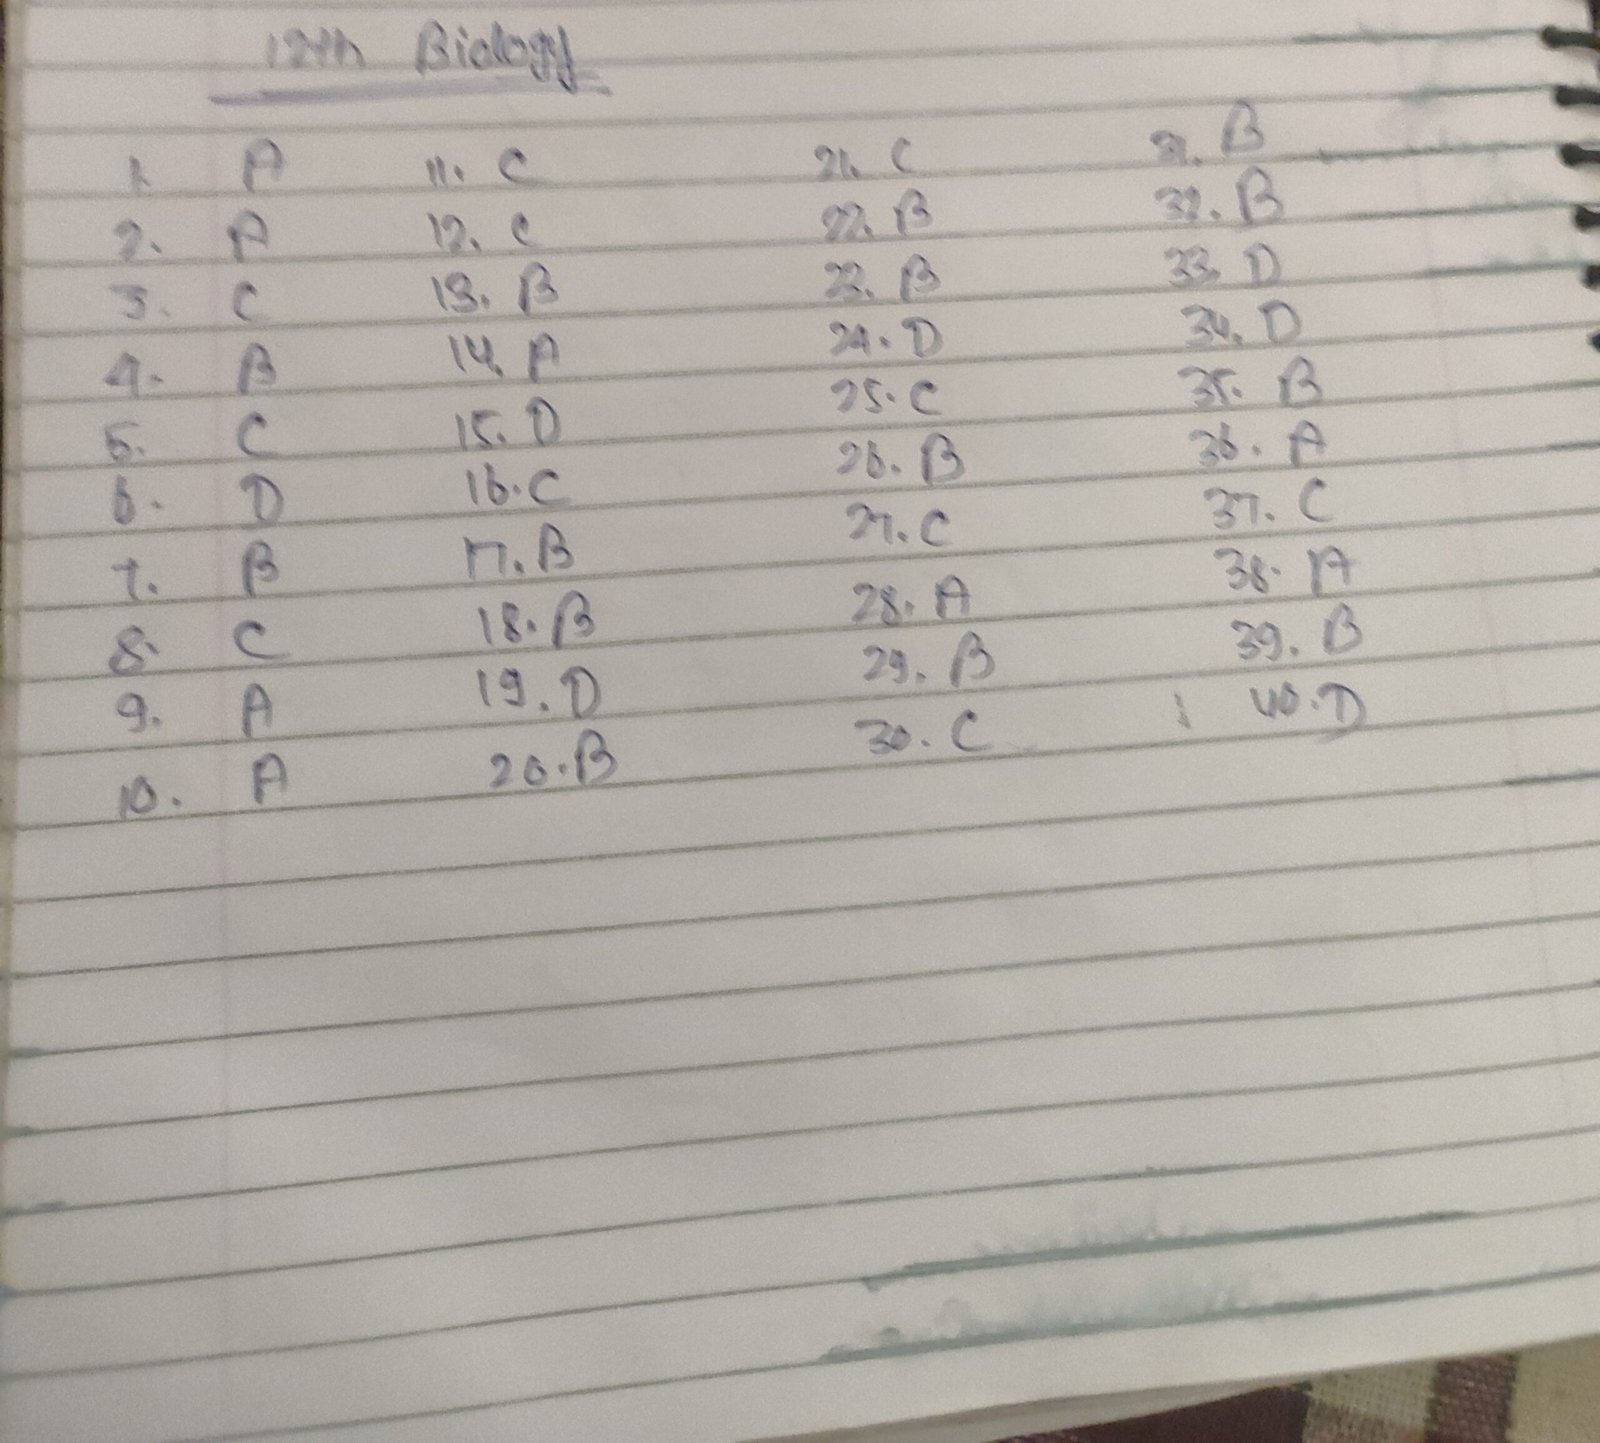 12th Biology
1. A 11. C 21. C 31. B
2. A 12. C 22. B 32. B
3. C 13. B 23. B 33. D
4. B 14. A 24. D 34. D
5. C 15. D 25. C 35. B
6. D 16. C 26. B 36. A
7. B 17. B 27. C 37. C
8. C 18. B 28. A 38. A
9. A 19. D 29. B 39. B
10. A 20. B 30. C 40. D